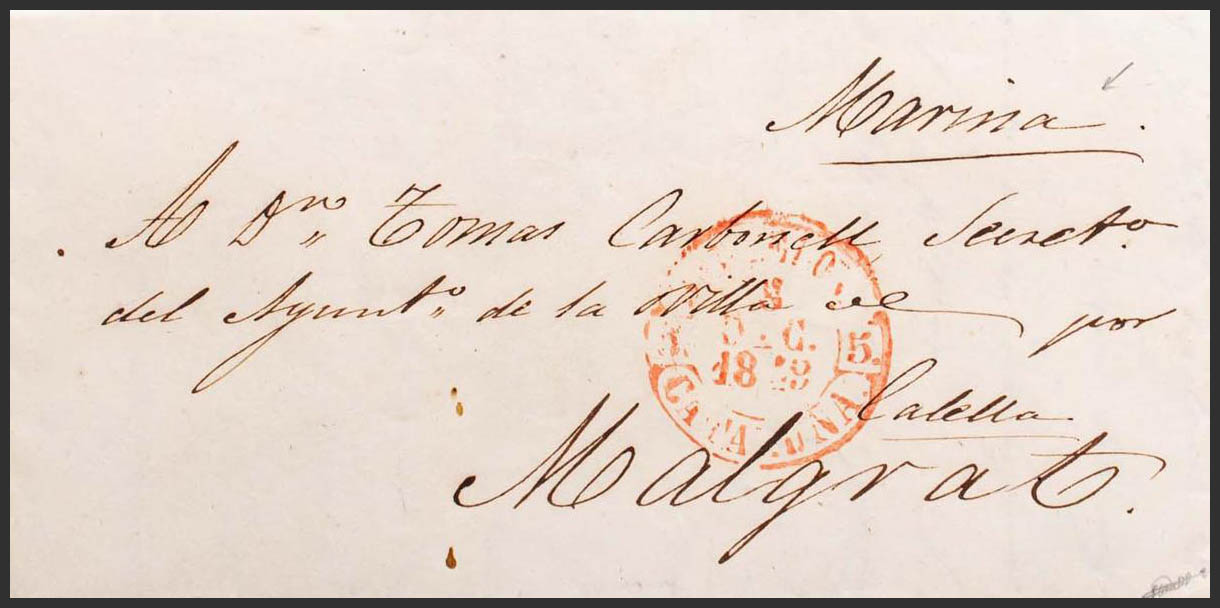 Marina
A Dn. Tomas Carbonell, Secreto.
del Ayunto. de la Villa de por
Calella
Malgrat.
5.
18
CATA UÑA.